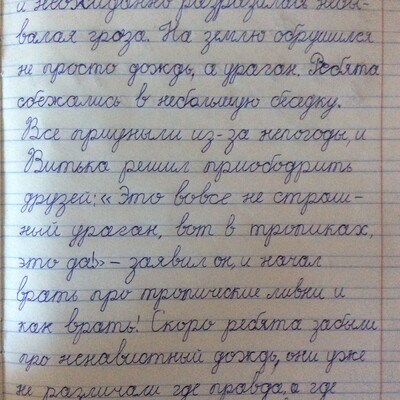 и неожиданно разразилась небы-
валая гроза. На землю обрушился
не просто дождь, а ураган. Ребята
сбежались в небольшую беседку.
Все приуныли из-за непогоды, и
Витька решил приободрить
друзей: «Это вовсе не страш-
ный ураган, вот в тропиках,
это да!» – заявил он, и начал
врать про тропические ливни и
как врать! Скоро ребята забыли
про ненавистный дождь, они уже
не различали где правда, а где